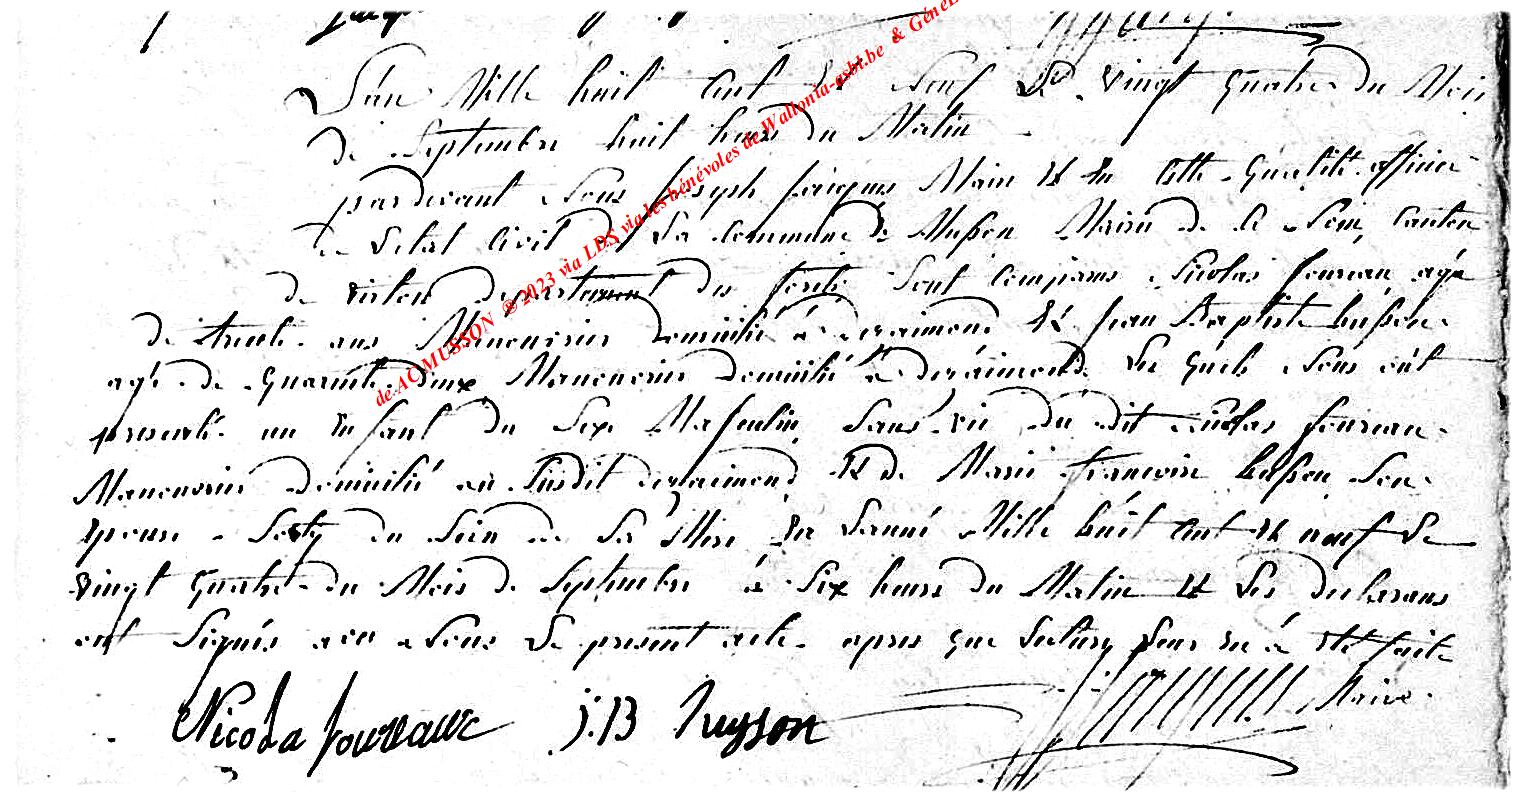 L'an Mille huit Cent et Neuf Le vingt quatre du Mois
de Septembre huit heurs du Matin
pardevant Nous Joseph Jacques Maire et en Cette qualité officier
de L'etat Civil de La Commune de Musson Mairie de Ce Nom, Canton
de virton departement des forêts Sont Comparus Nicolas foureau agé
de trente ans Manoeuvrier domicilié à Baranci et Jean Baptiste husson
agé de quarante deux Manoeuvrier domicilié à Les quels Nous ont
presenté un Enfant du Sexe Masculin Sans vie du dit Nicolas foureau
Manoeuvrier domicilié au Susdit et de Marie françoise husson Son
Epouse Sorty du Sein de Sa Mere En L'année Mille huit Cent et neuf Le
vingt quatre du Mois de Septembre à Six heurs du Matin et Les declarans
ont Signés avec Nous Le present acte apres que Lecture Leur En à eté faite
Maire
Nicola foureaux J:B husson
de AC MUSSON ® 2023 via LDS via les bénévoles de Wallonia-asbl.be & Géné